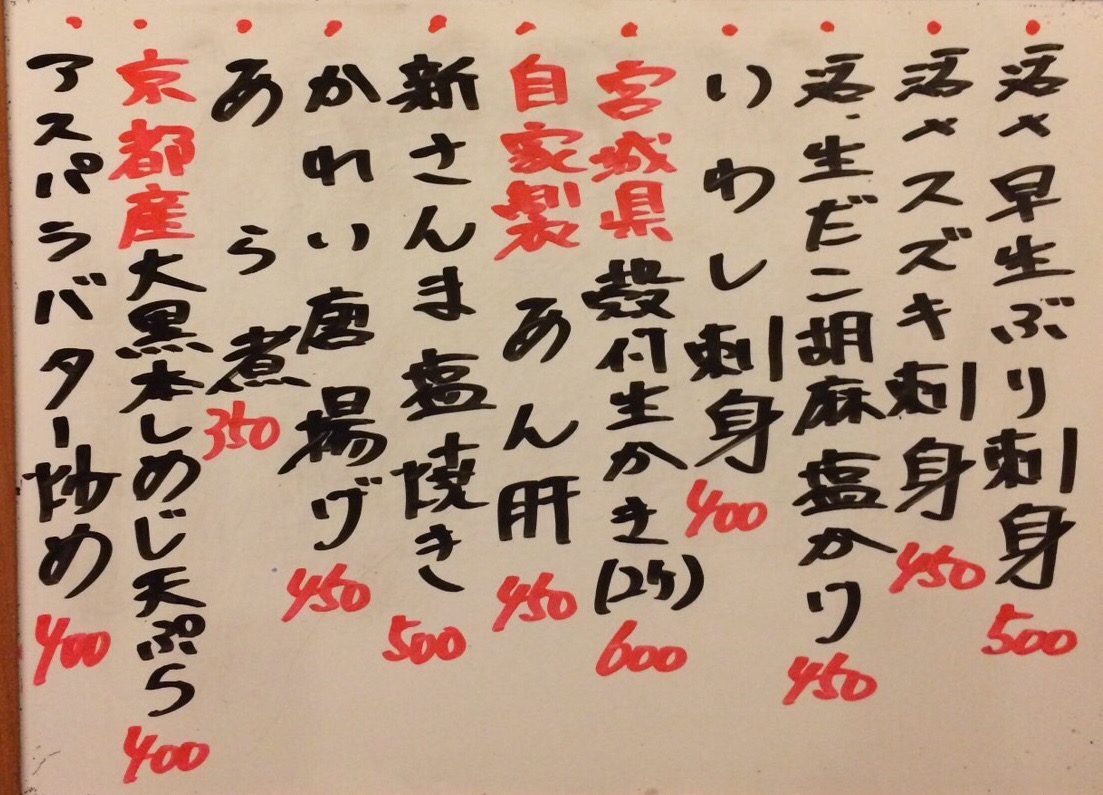 活〆早生ぶり刺身 500
活〆スズキ刺身 450
活・生だこ胡麻塩かり 450
いわし刺身 400
宮城県殻付生かき(2ケ) 600
自家製あん肝 450
新さんま塩焼き 500
かれい唐揚げ 450
あら煮 350
京都産大黒本しめじ天ぷら 400
アスパラバター炒め 400